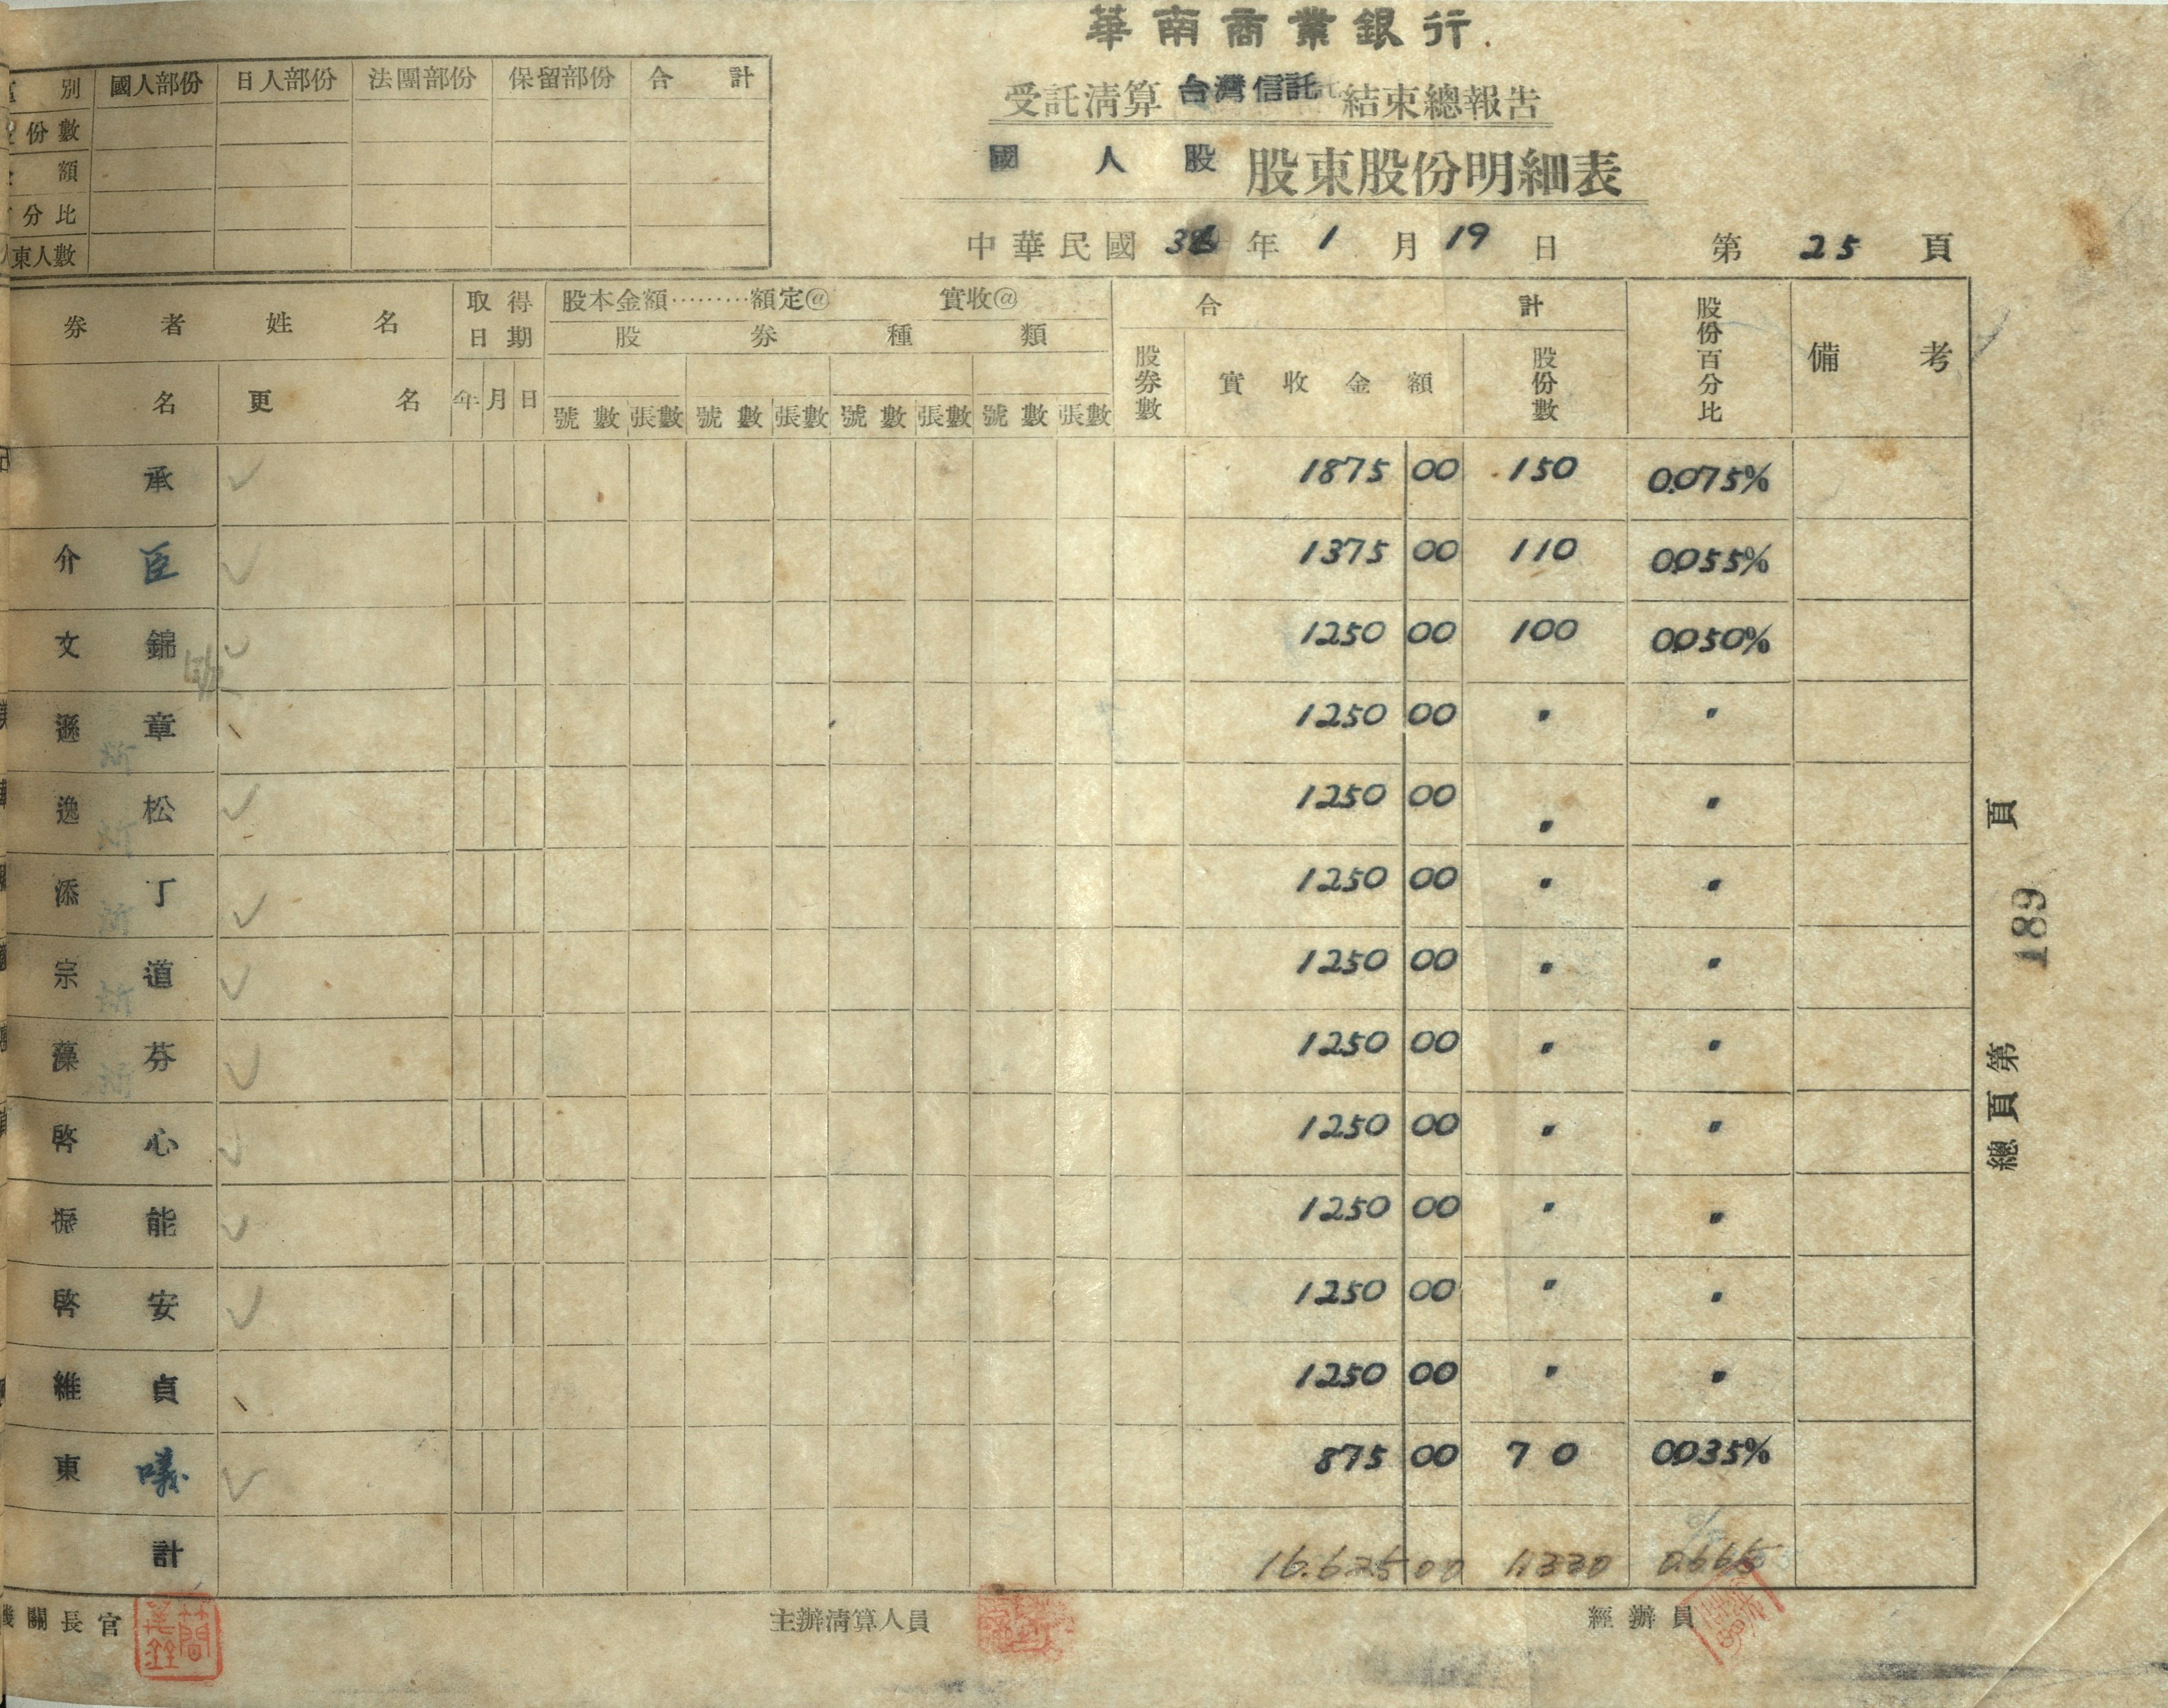 華南商業銀行.
受託清算 台灣信託 結束總報告
國人股 股東股份明細表
中華民國 36 年 1 月 19 日 第 25 頁
別 國人部份 日人部份 法團部份 保留部份 合計
份數
額
分比
東人數
券者姓名 取得日期 股本金額………額定@ 實收@ 合計 股份百分比 備考
股券種類
名 更名 年 月 日 號數 張數 號數 張數 號數 張數 號數 張數 股券數 實收金額 股份數
承 1875 00 150 0.075%
介臣 1375 00 110 0.055%
文錦 1250 00 100 0.050%
遜章 1250 00 〃 〃
逸松 1250 00 〃 〃
添丁 1250 00 〃 〃
宗道 1250 00 〃 〃
藻芬 1250 00 〃 〃
啓心 1250 00 〃 〃
振能 1250 00 〃 〃
啓安 1250 00 〃 〃
維貞 1250 00 〃 〃
東曦 875 00 70 0.035%
計 16.625 00 1.330 0.665
關長官 主辦清算人員 經辦員
總頁第 189 頁